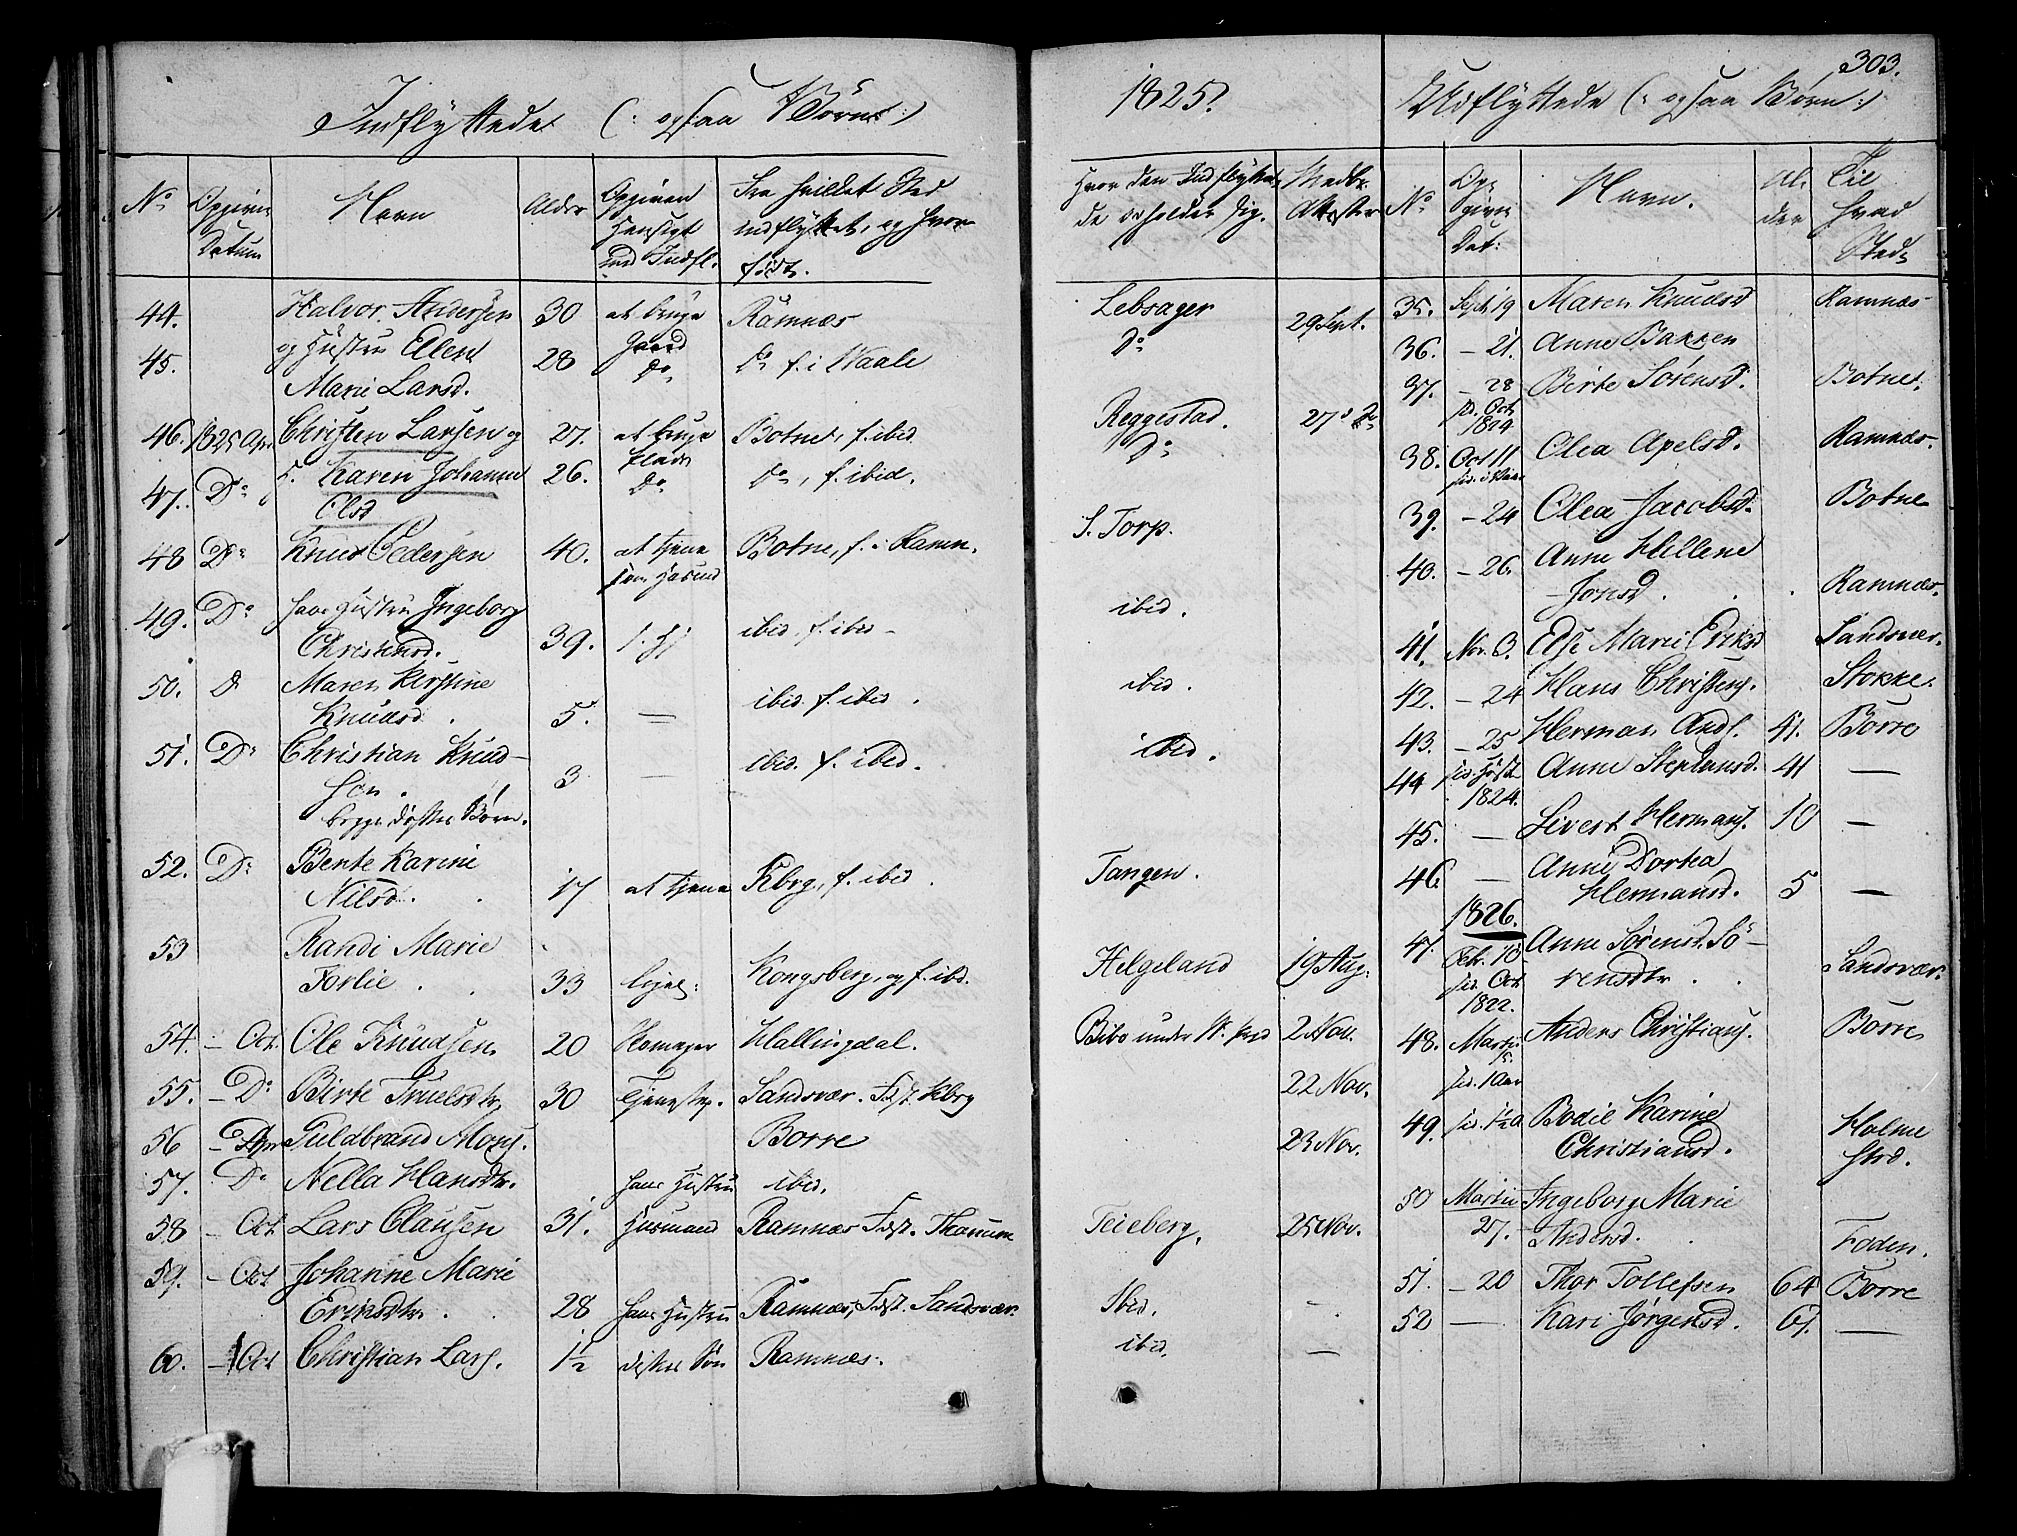 Indflyttede (: ogsaa Børn :)
No
Opgiven
Datum
Navn
Alder
Opgiven
Hensigt
med Indfl.
Fra hvilket Sted
indflyttet, og hvor
født.
44. Halvor Andersen 30 at bruge Ramnæs
og Hustru Elen Gaard
45. Marie Larsd. 28 Do Do f. i Vaale
46. 1825 Apr. Christen Larsen og 27. at bruge Botne, f. ibid.
Plads
47. Do Karen Johanne 26. Do Do, f. ibid.
Olsd
48 Do Knud Pedersen 40. at tjene Botne, f. i Ramn.
som Husmd
49. Do hans Hustru Ingeborg
Christensd. 39. ibid, f. ibid
50. D Maren Kirstine
Knudsd. 5. — ibid. f. ibid.
51. Do Christian Knud-
sen. 3 — ibid. f. ibid.
begge disses Børn.
52. Do Bente Karine
Nilsd. 17 at tjene Kbrg., f. ibid.
53 Randi Marie
Torlie 33 Kongsberg, og f. ibd.
54. – Oct. Ole Knudsen 20 Hallingdal.
55. – Do Birte Truelsdtr 30 Tjenestep. Sandsvær. Fdst. Kbrg
56 – Guldbrand Mons. Borre
57. Do Nella Hansdtr. hans Hustru ibid.
58 – Oct Lars Clausen 31. Husmand Ramnæs Fdst.
59. – Oct Johanne Marie
Eriksdtr. 28 hans Hustru Ramnæs, Fdst. Sandsvær.
60. – Oct Christian Lars. 1½ disses Søn Ramnæs.
1825.
Hvor den Indflytte-
de opholder sig.
Medbr.
Attester
Lebsager 29 Sept.
Do
Reggestad. 27
Do
S. Torp.
ibid.
ibid.
ibid.
Tangen.
Helgeland 19 Aug.
2 Nov.
22 Nov.
23 Nov.
Teieberg. 25 Nov.
Ibid. –
ibid. —
303.
Udflyttede (: ogsaa Børn :)
No
Op-
given
Dat:
Navn.
Al-
der
Til
hvad
Sted
35. Sept. 19 Maren Knudsd Ramnæs
36. – 21. Anne Bakken
37. – 28 Birte Sørensd. Botne.
sid. Oct
1824
38. Oct 11 Olea Apelsd. Ramnæs.
39. – 24 Olea Jacobsd. Botne
40. – 26. Anne Hellene
Jonsd. Ramnæs.
41. Nov. 3. Else Marie Eriksd Sandsvær.
42. – 24 Hans Christens. Stokke.
43. – 25 Herman And. 41. Borre
44 sid. Høst Anne Stephansd. 41 —
1824.
45. — Sivert Hermans. 10 —
46. — Anne Dortea
Hermansd. 5 —
1826.
47. Feb. 10 Anne Sørensd. Sö-
sid. Oct rensdtr Sandsvær.
1822.
48. Marti Anders Christians. Borre
sid. 1 Aar
49. sid. 1½ A Bodil Karine
Christiansd. Holme
strd.
50 Martii Ingeborg Marie
27. Andersd.
51. – 20 Thor Tollefsen 64 Borre
52 — Kari Jørgensd. 61. —